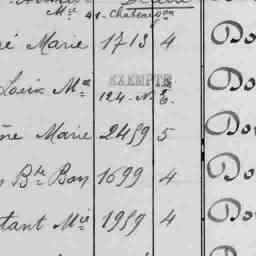 Mie 41 - Chateaugon
Marie 1713 4 Do
Louis Me EXEMPTÉ
124 - N. E. Do
Marie 2459 5 Do
Bte Bon 1699 4 Do
tant Mie 1959 4 Do